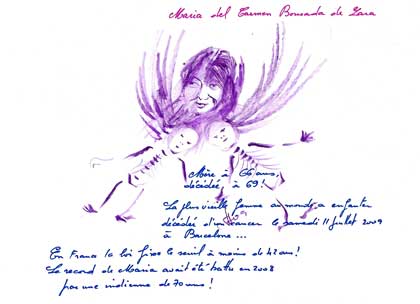 Maria del Carmen Bousada de Lara
Mère à 66 ans,
décédée, à 69 !
La plus vieille femme au monde a enfanter
décédée d'un cancer le samedi 11 juillet 2009
à Barcelone ...
En France la loi fixe le seuil à moins de 42 ans !
Le record de Maria avait été battu en 2008
par une indienne de 70 ans !